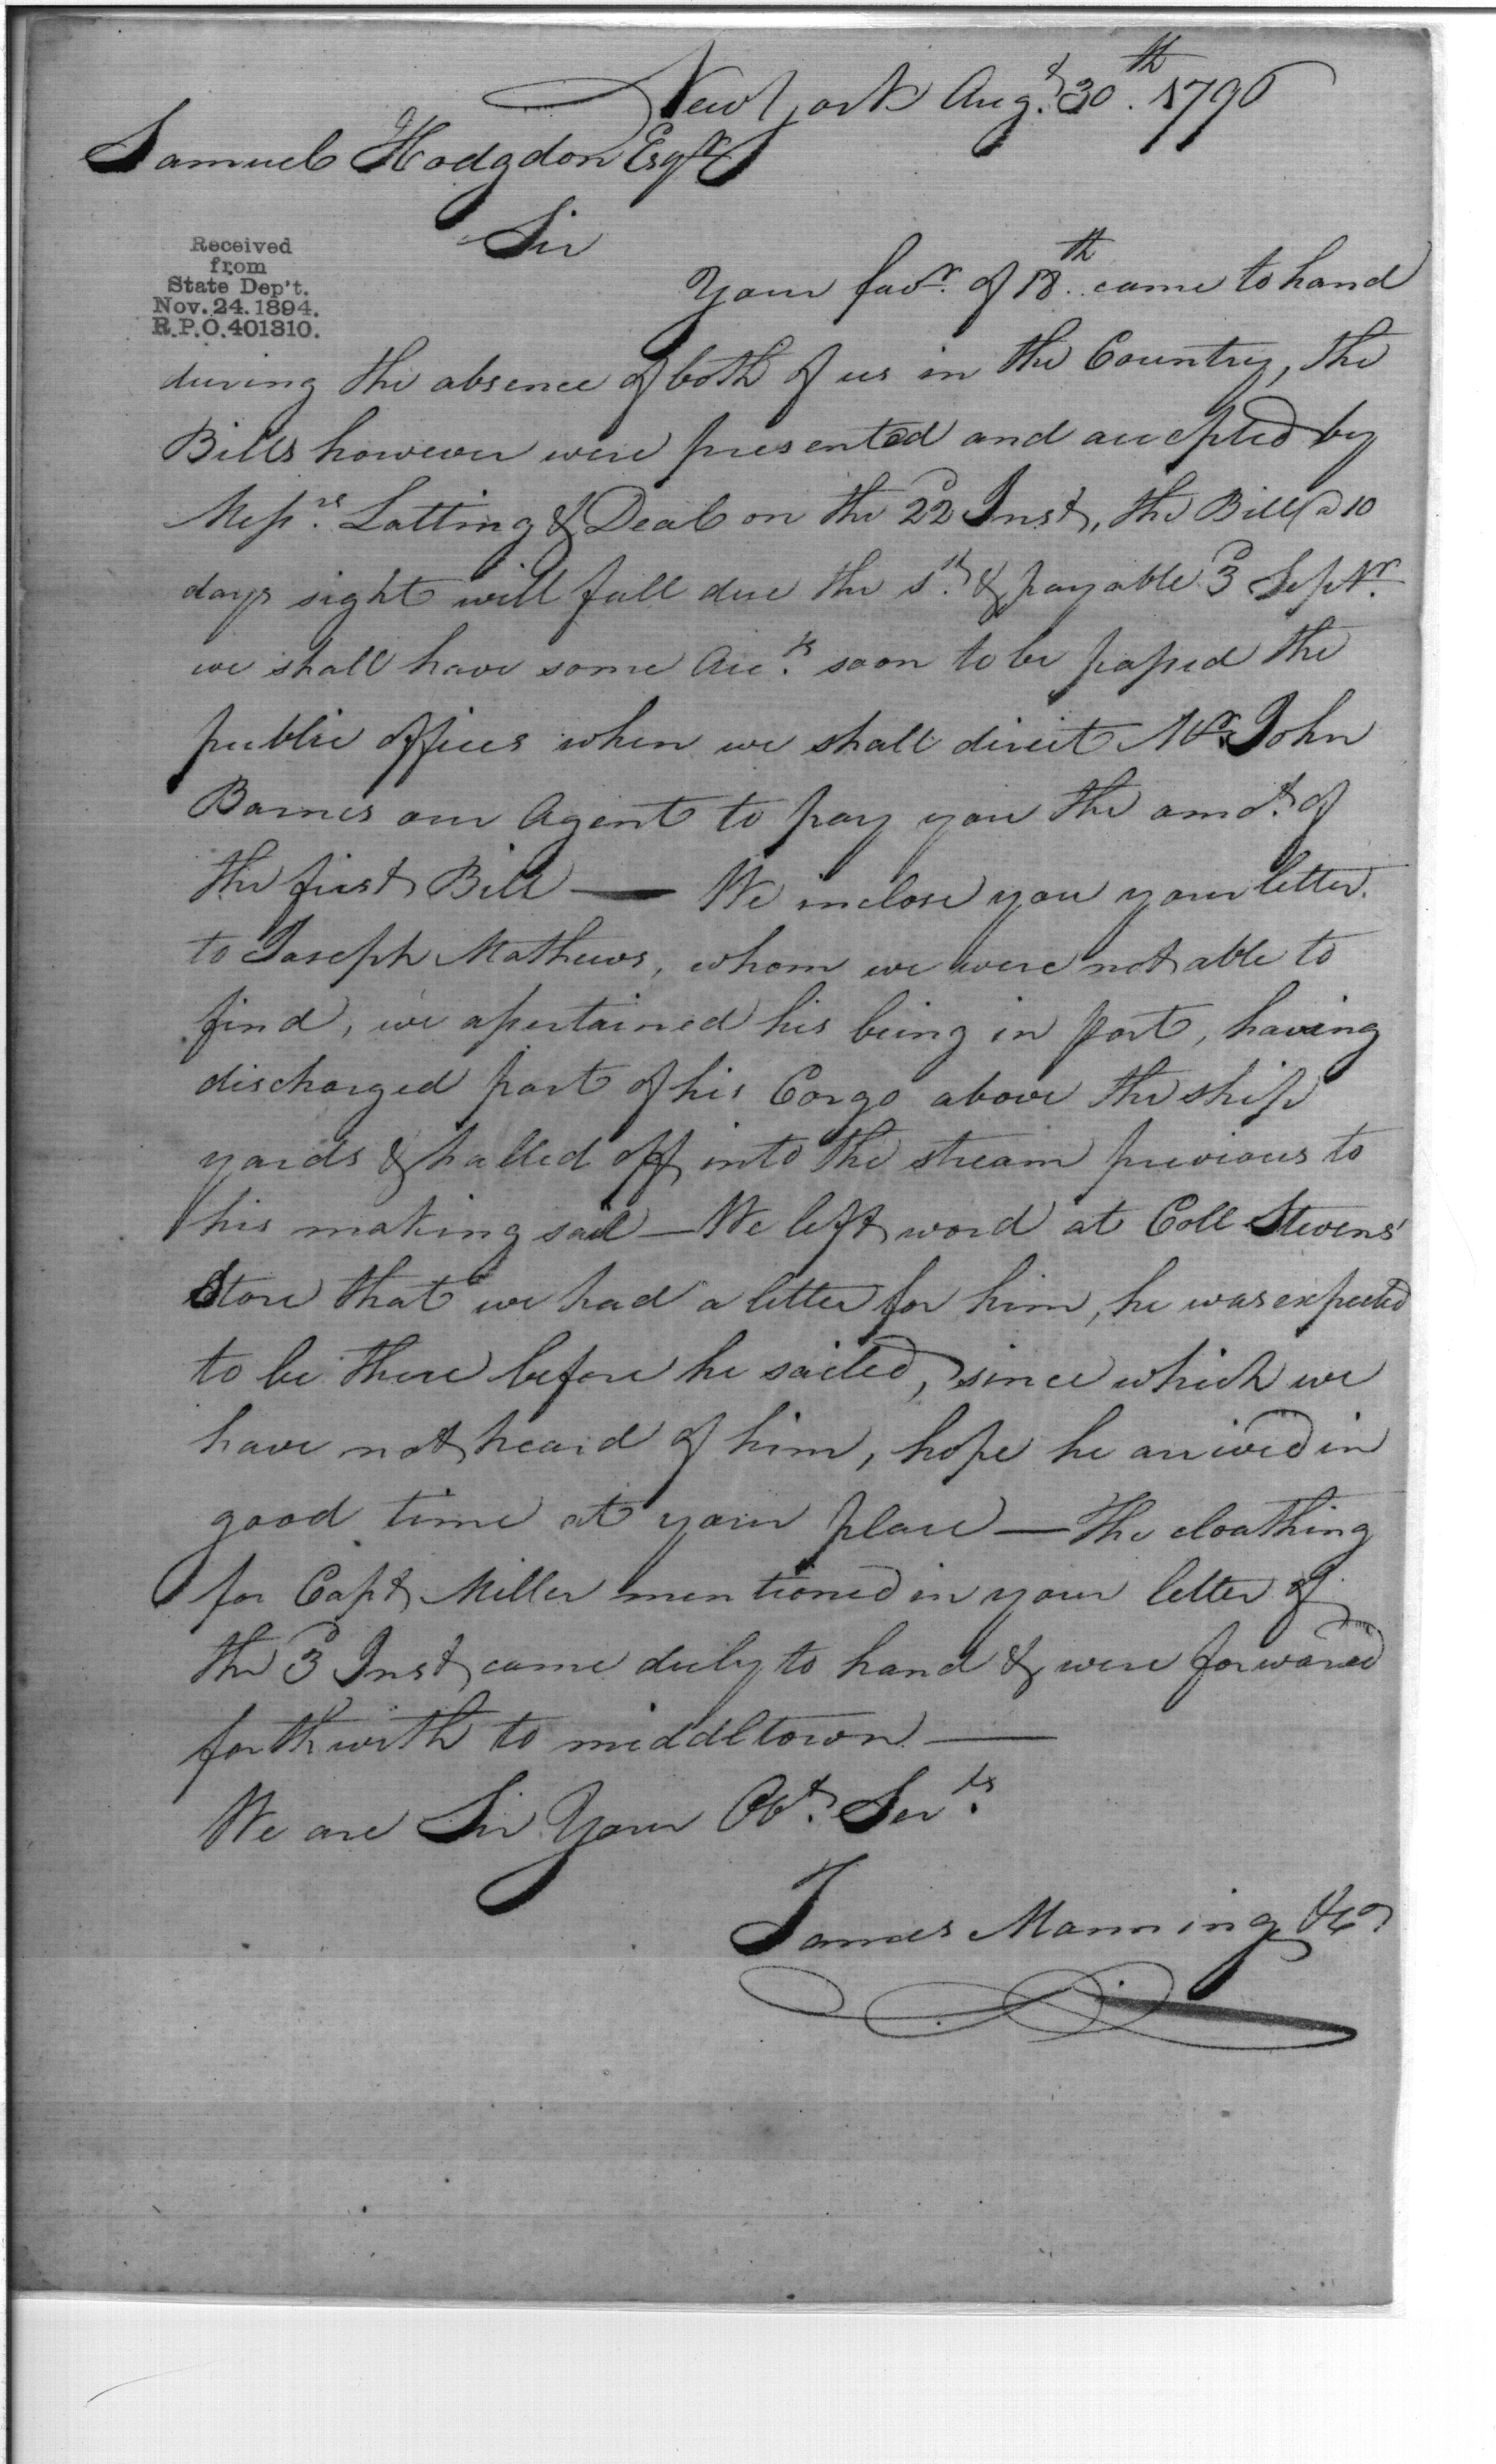 New York Augt. 30th. 1796
Samuel Hodgdon Esqr
Sir
Received
from
State Dep't.
Nov. 24. 1894.
R.P.O. 401310.
Your favr. of 18th. came to hand
during the absence of both of us in the Country, the
Bills however were presented and accepted by
Messrs. Latting & Deal on the 22d Inst, the Bill @ 10
days sight will fall due the 1st. & payable 3d Septr.
we shall have some Accts. soon to be passed the
public offices when we shall direct Mr. John
Barnes our Agent to pay you the amot. of
the first Bill — We inclose you your letter
to Joseph Mathews, whom we were not able to
find, we assertained his being in port, having
discharged part of his Cargo above the ship
yards & halled off into the stream previous to
his making sail — We left word at Coll Stevens'
Store that we had a letter for him, he was expected
to be there before he sailed, since which we
have not heard of him, hope he arrived in
good time at your place — The cloathing
for Capt Miller mentioned in your letter of
the 3d Inst came duly to hand & were forwared
forthwith to middltown —
We are Sir Your Obt. Servts.
James Manning & Co